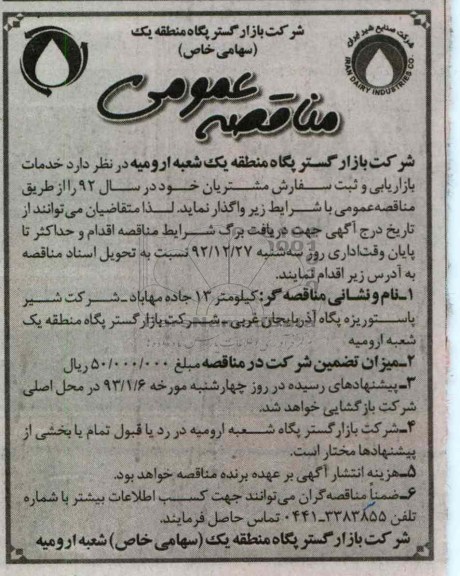 شرکت بازار گستر پگاه منطقه یک
(سهامی خاص)
شرکت صنایع شیر ایران
IRAN DAIRY INDUSTRIES CO.
مناقصه عمومی
شرکت بازار گستر پگاه منطقه یک شعبه ارومیه در نظر دارد خدمات
بازاریابی و ثبت سفارش مشتریان خود در سال ۹۲ را از طریق
مناقصه عمومی با شرایط زیر واگذار نماید. لذا متقاضیان می‌توانند از
تاریخ درج آگهی جهت دریافت برگ شرایط مناقصه اقدام و حداکثر تا
پایان وقت اداری روز سه‌شنبه ۹۲/۱۲/۲۷ نسبت به تحویل اسناد مناقصه
به آدرس زیر اقدام نمایند.
۱ـ نام و نشانی مناقصه گر: کیلومتر ۱۳ جاده مهاباد ـ شرکت شیر
پاستوریزه پگاه آذربایجان غربی ـ شرکت بازار گستر پگاه منطقه یک
شعبه ارومیه
۲ـ میزان تضمین شرکت در مناقصه مبلغ ۵۰/۰۰۰/۰۰۰ ریال
۳ـ پیشنهادهای رسیده در روز چهارشنبه مورخه ۹۳/۱/۶ در محل اصلی
شرکت بازگشایی خواهد شد.
۴ـ شرکت بازار گستر پگاه شعبه ارومیه در رد یا قبول تمام یا بخشی از
پیشنهادها مختار است.
۵ـ هزینه انتشار آگهی بر عهده برنده مناقصه خواهد بود.
۶ـ ضمناً مناقصه‌گران می‌توانند جهت کسب اطلاعات بیشتر با شماره
تلفن ۳۳۸۳۸۵۵ـ۰۴۴۱ تماس حاصل فرمایند.
شرکت بازار گستر پگاه منطقه یک (سهامی خاص) شعبه ارومیه